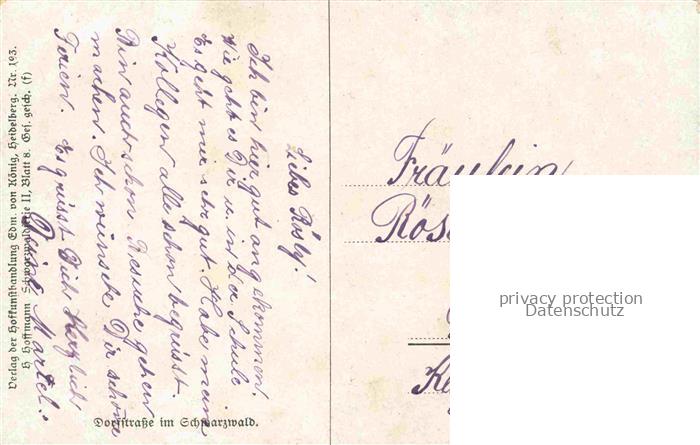 Liebes Rösly!
Ich bin hier gut angekommen.
Wie geht es Dir u. in der Schule
Es geht mir sehr gut. Habe meine
Kollegen alle schon begrüsst.
Bin auch schon Besuche gehen
machen. Ich wünsche Dir schöne
Ferien. Es grüsst Dich Herzlich
Deine Martel.
Verlag der Hofkunsthandlung Edm. von König, Heidelberg. Nr. 193.
H. Hoffmann Schwarzwaldserie II, Blatt 8. Ges. gesch. (f)
Dorfstraße im Schwarzwald.
Fräulein
Rös
privacy protection
Datenschutz